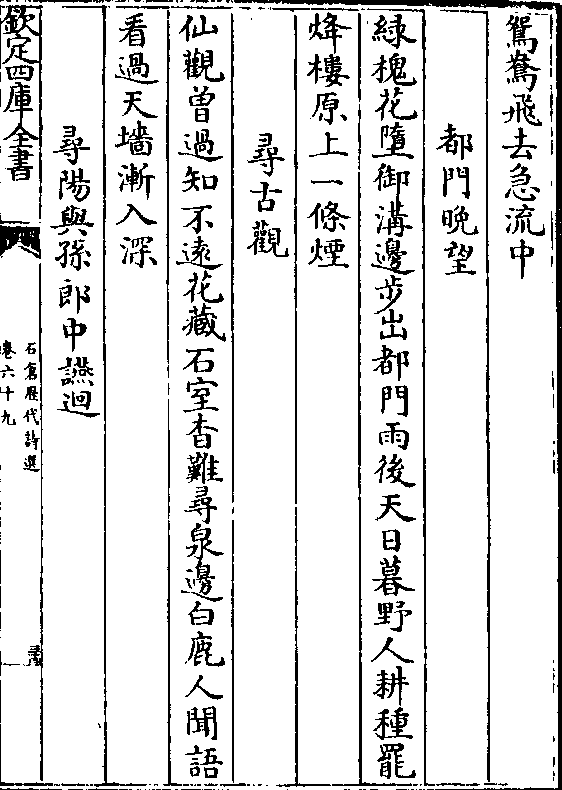 鴛鴦飛去急流中
都門晩望
緑槐花墮御溝邊步出都門雨後天日暮野人耕種罷
烽樓原上一條煙
尋古觀
仙觀曾過知不遠花藏石室杳難尋泉邊白鹿人聞語
看過天墻漸入深
尋陽與孫郎中讌迴
欽定四庫全書
石倉歷代詩選
卷六十九